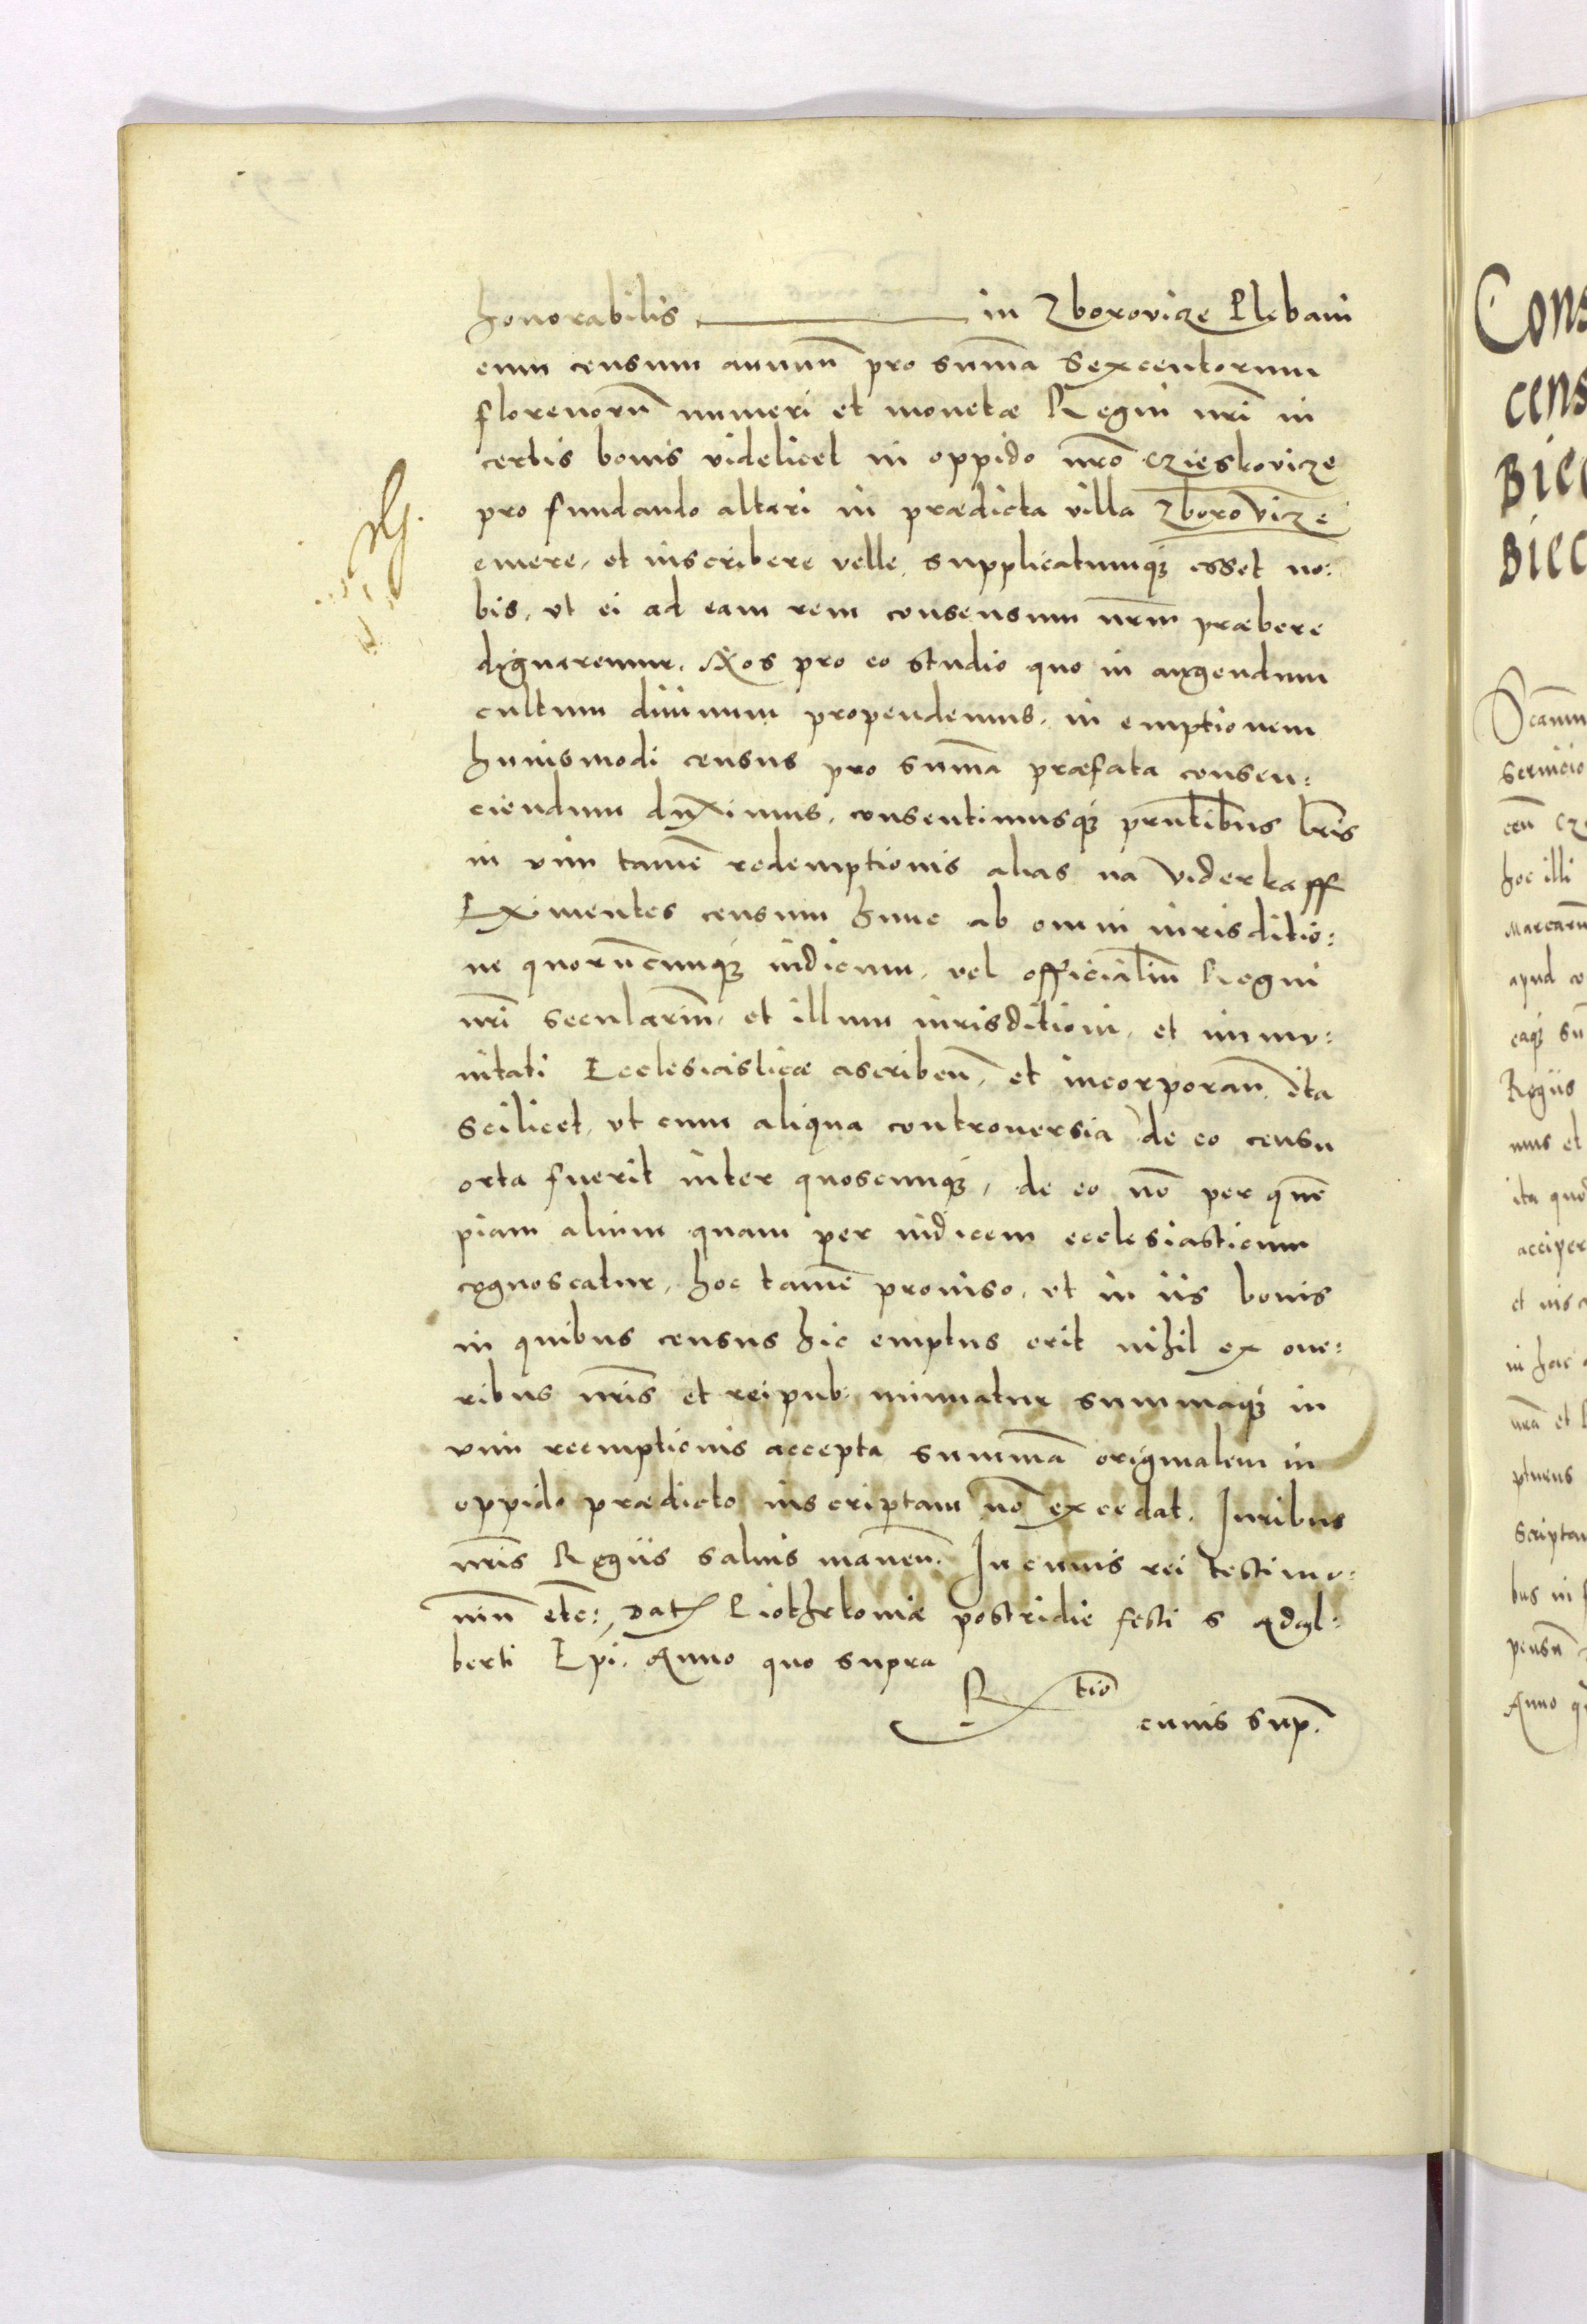 honorabilis ———— in Zborovicze Plebani
eum censum annuũ pro sum̃a sexcentorum
florenorũ numeri et monetæ Regni nr̃i in
certis bonis videlicet in oppido nr̃o Czieskovicze
pro fundando altari in prædicta villa Zborovicze
emere, et inscribere velle, supplicatumq; esset no:
bis, vt ei ad eam rem consensum nr̃m præbere
dignaremur. Nos pro eo studio quo in augendum
cultum diuinum propendemus, in emptionem
huiusmodi census pro sum̃a præfata consen:
ciendum duximus, consentimusq; pr̃ntibus lr̃is
in vim tamẽ redemptionis alias na viderkaff
Eximentes censum hunc ab omni iurisditio:
ne quorũcunq; iudicum, vel officialiũ Regni
nr̃i seculariũ, et illum iurisditioni, et immu:
nitati Ecclesiasticæ ascribeñ, et incorporañ. ita
scilicet, vt cum aliqua controuersia de eo censu
orta fuerit inter quoscunq;, de eo nõ per quẽ
piam alium quam per iudicem ecclesiasticum
cognoscatur, hoc tamẽ prouiso, vt in iis bonis
in quibus census hic emptus erit nihil ex one:
ribus nr̃is et reipub: minuatur summaq; in
vim reemptionis accepta summã originalem in
oppido prædicto inscriptam nõ excedat. Iuribus
nr̃is Regiis saluis maneñ. In cuius rei testimo:
niũ etc:, Dat Piothrkoviæ postridie festi s Adal:
berti Epi. Anno quo supra
R tio
cuius sup.
Cons
cens
Biec
Biec
cen Cz
hoc illi
Marcarũ
apud
eaq; su
Regiis
mus et
ita quod
acciper
in hac
nr̃a et
Anno q